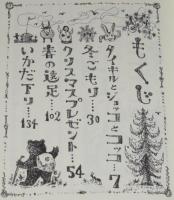 もくじ
ダイキチとジョッコとコッコ…7
冬ごもり…30
クリスマスプレゼント…54
春の遠足…102
いかだ下り…134